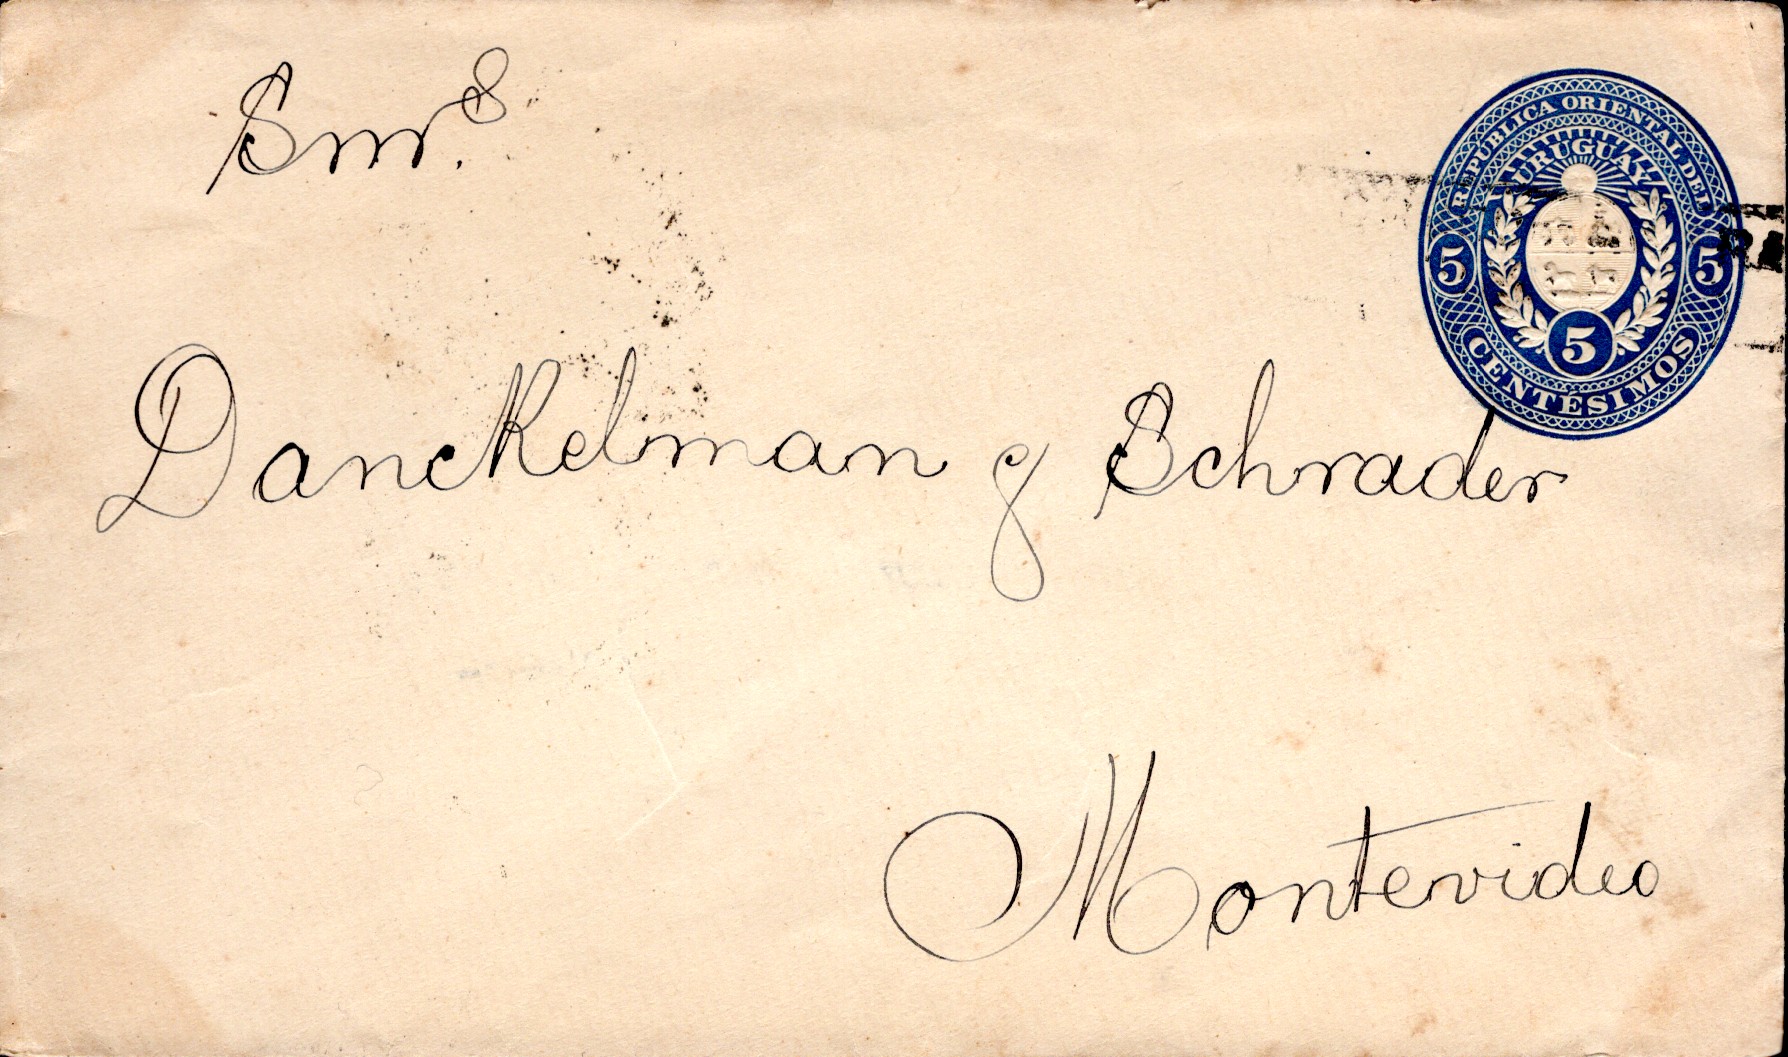 Snr.s
Danckelman y Schrader
Montevideo
REPUBLICA ORIENTAL DEL
URUGUAY
5 5
5
CENTÉSIMOS